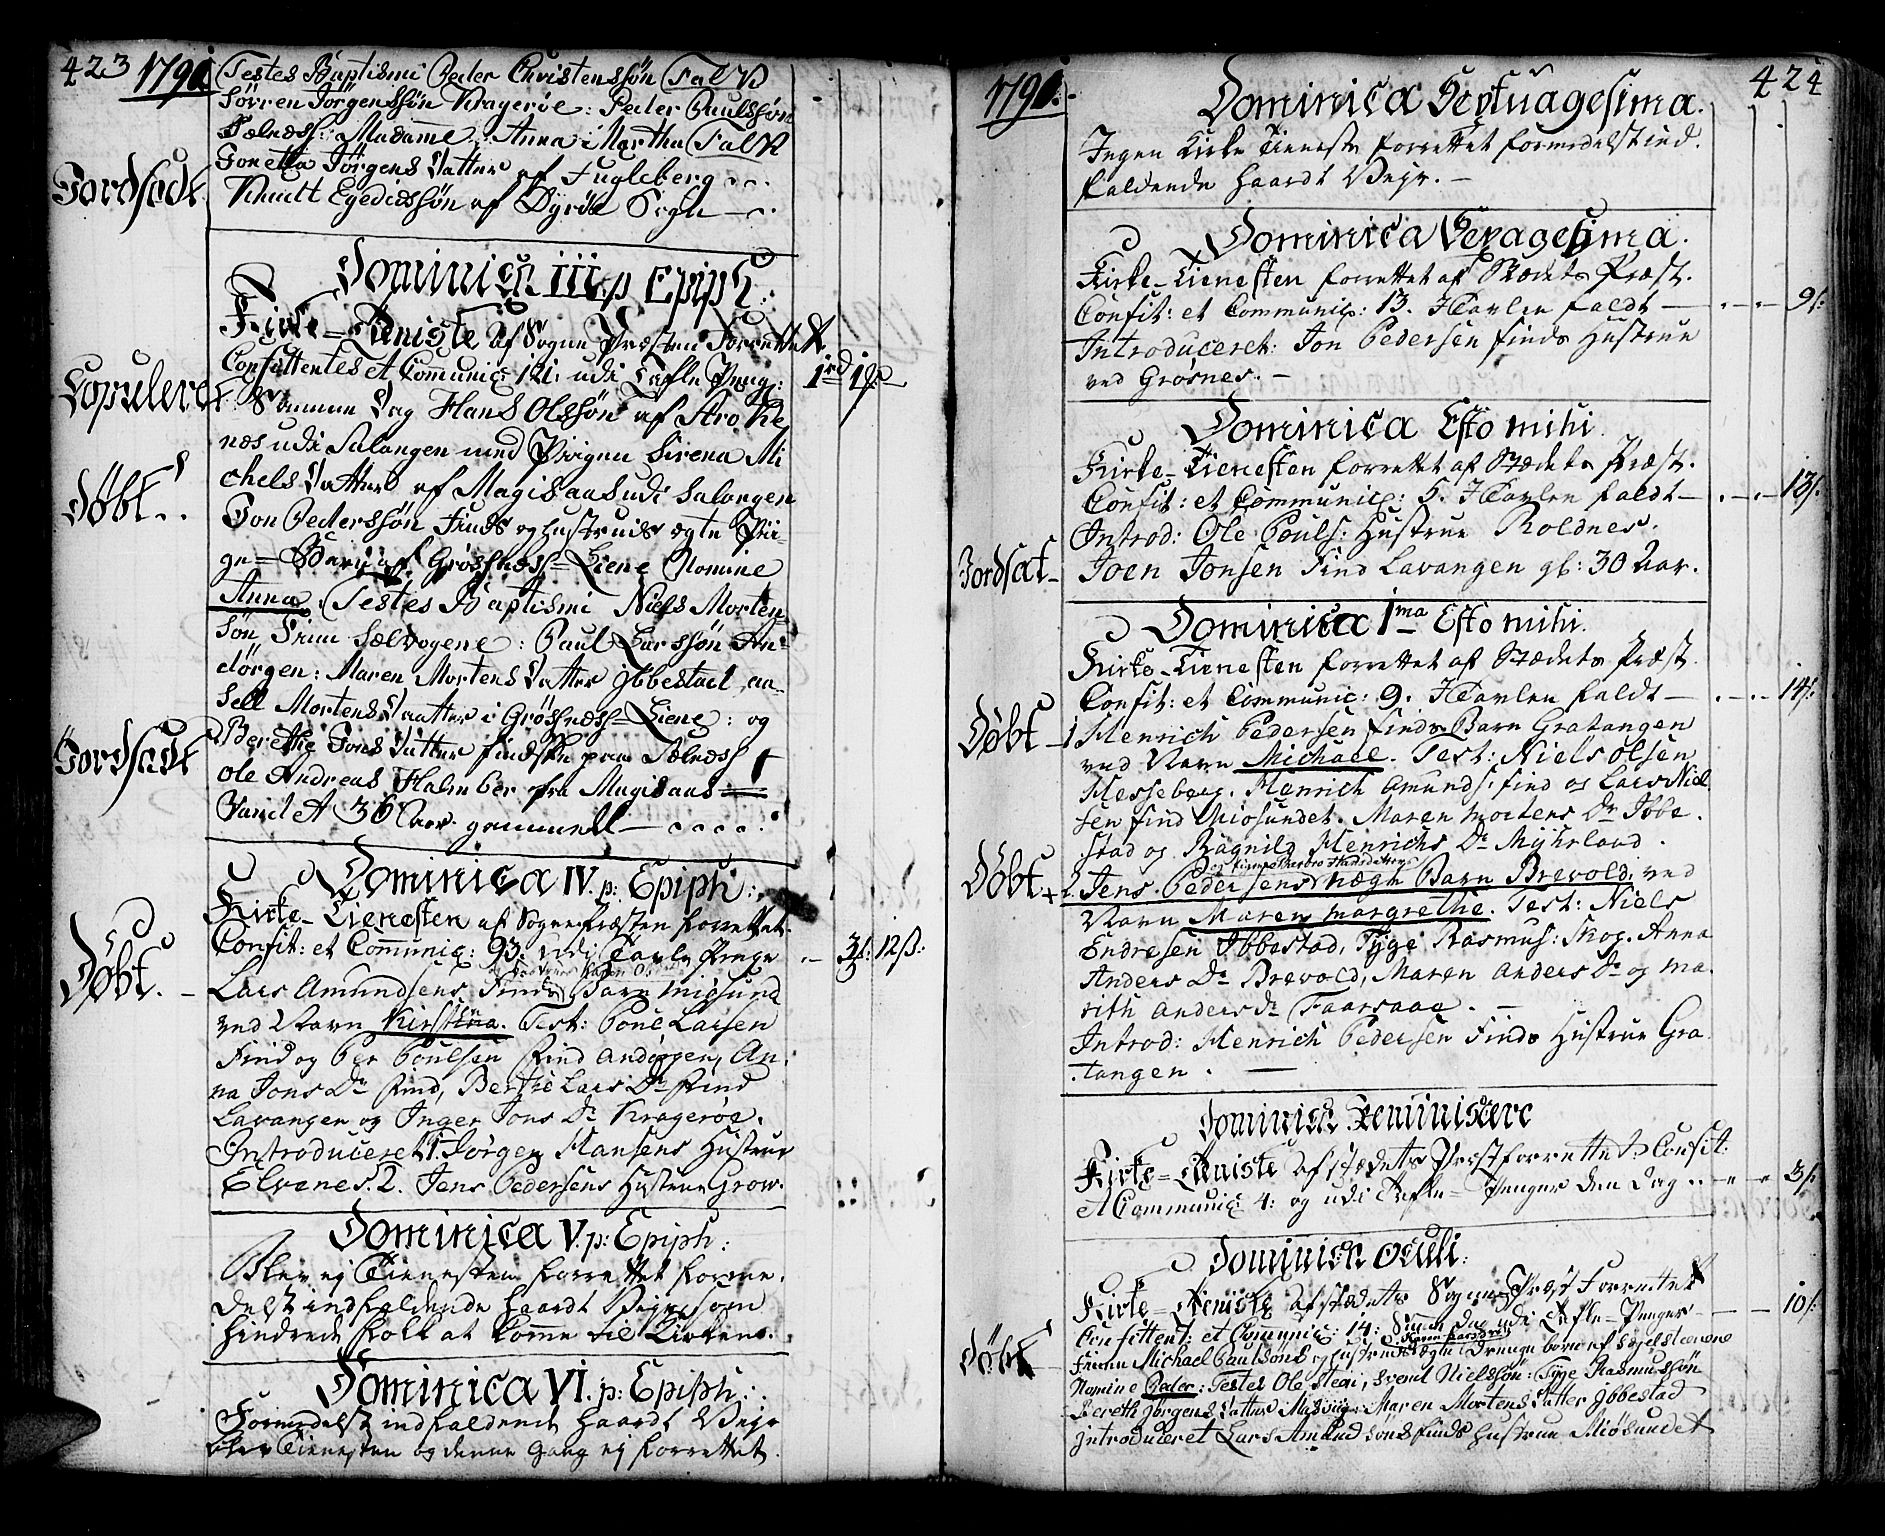 423 1791
Testes Baptismi Peder Christenssøn Falch
Sørren Jørgenssøn Kragerøe: Peder Paulssøn
Sælness: Madame Anna Martha Falch
Jordsadt Jonetta Jørgens Datter af Fugleberg
Knudt Egedissøn af Dyrøe Sogn
Dominica III p Epiph:
Kirke=Tieniste af Sogne Præsten Forrettet
Confittentes et Communic: 121: udi Tafle Peng:
Copuleret Samme Dag Hans Olssøn af Arohe
næs udi Salangen med Pigen Sirena Mi
chels Datter af Magisaas udi Salangen
Døbt Jon Pederssøn Finds og Hustruis ægte Pii-
ge=Barn af Grøssnæss=Liene Nomine
Anna Testes Baptismi Niels Morten
søn Trim Sælvogene: Paul Larssøn An-
dørgen: Maren Mortens Datter Ibbestad,
Mortens Daatter i Grøssnæss=Liene: og
Berethe Jons Datter findske paa Sælness
Jordsadt Ole Andreas Halmber fra Magisaas
36 Aar gammell
Dominica IV. p: Epiph:
Kirke-Tienesten af Sognepræsten forrettet.
Confit: et Communic: 93. udi Tavle Penge 3f: 12ß:
Døbt. Lars Amundsens Finds Barn Miøsund
ved Navn Kirstina. Test: Poul Larsen
Find og Per Poulsen Find Andørgen, An-
na Jons Dr Find, Berthe Lars Dr Find
Lavangen og Inger Jons Dr Kragerøe.
Introduceret 1. Jørgen Hansens Hustrue
Elvenes. 2. Jens Pedersens Hustrue Grow.
Dominica V. p: Epiph:
Blev ej Tienesten forrettet forme-
delst indfaldende haardt Vejr som
hindrede Folk at komme til Kirken.
Dominica VI. p: Epiph:
Formedelst indfaldende haardt Vejr
blev Tienesten og denne Gang ej forrettet.
1791. 424
Dominica Septuagesima.
Ingen Kirke Tieneste forrettet formedelst ind-
faldende haardt Vejr.
Dominica Sexagesima.
Kirke-Tienesten forrettet af Stædets Præst.
Confit: et Communic: 13. I Tavlen faldt 9f:
Introduceret: Jon Pedersen Finds Hustrue
ved Grøsnes.
Dominica Esto mihi.
Kirke-Tienesten forrettet af Stædets Præst.
Confit: et Communic: 5. I Tavlen faldt 13f:
Introd: Ole Pouls: Hustrue Roldnes.
Jordsat Joen Jonsen Find Lavangen gl: 30 Aar.
Dominica 1ma Esto mihi.
Kirke-Tienesten forrettet af Stædets Præst.
Confit: et Communic: 9. I Tavlen faldt 14f:
Døbt 1 Henrich Pedersen Finds Barn Gratangen
ved Navn Michael. Test: Niels Olsen
Hesseberg. Henrich Amunds: Find og Lars Niel-
sen Find Miøsundet. Maren Mortens Dr Ibbe-
stad og Ragnild Henrichs Dr Myhrland.
Døbt 2. Jens Pedersens uægte Barn Brevold, ved
Navn Maren Margrethe. Test: Niels
Endresen Ibbestad, Tyge Rasmus: Skog. Anna
Anders Dr Brevold, Maren Anders Dr og Ma-
rith Anders Dr Faarsaae.
Introd: Henrich Pedersen Finds Hustrue Gra-
tangen.
Dominica Reminiscere
Kirke=Tieniste af Stædets Præst forrettet: Confit:
et Communic: 4: og udi Tafle=Penger den Dag 3f:
Dominica Oculi:
Kirke=Tieniste af Stædets Sogne Præst Forrettet
Confittent: et Comunic: 14: Samme Dag udi Tafle=Penger 10f:
Døbt Finn Michael Paulsøns og Hustrues ægte Drenge barn af Sagelsteenene
Nomine Peder: Testes Ole Stegi, Svend Nielssøn: Tyge Rasmussøn
Bereth Jørgens Datter Maren Mortens Datter Ibbestad
Introduceret Lars Amundsøns Finds Hustrue Miøsundet